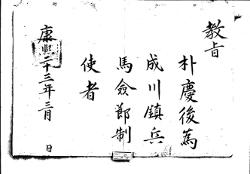 教旨
朴慶後為
成川鎮兵
馬僉節制
使者
康熙二十三年三月 日